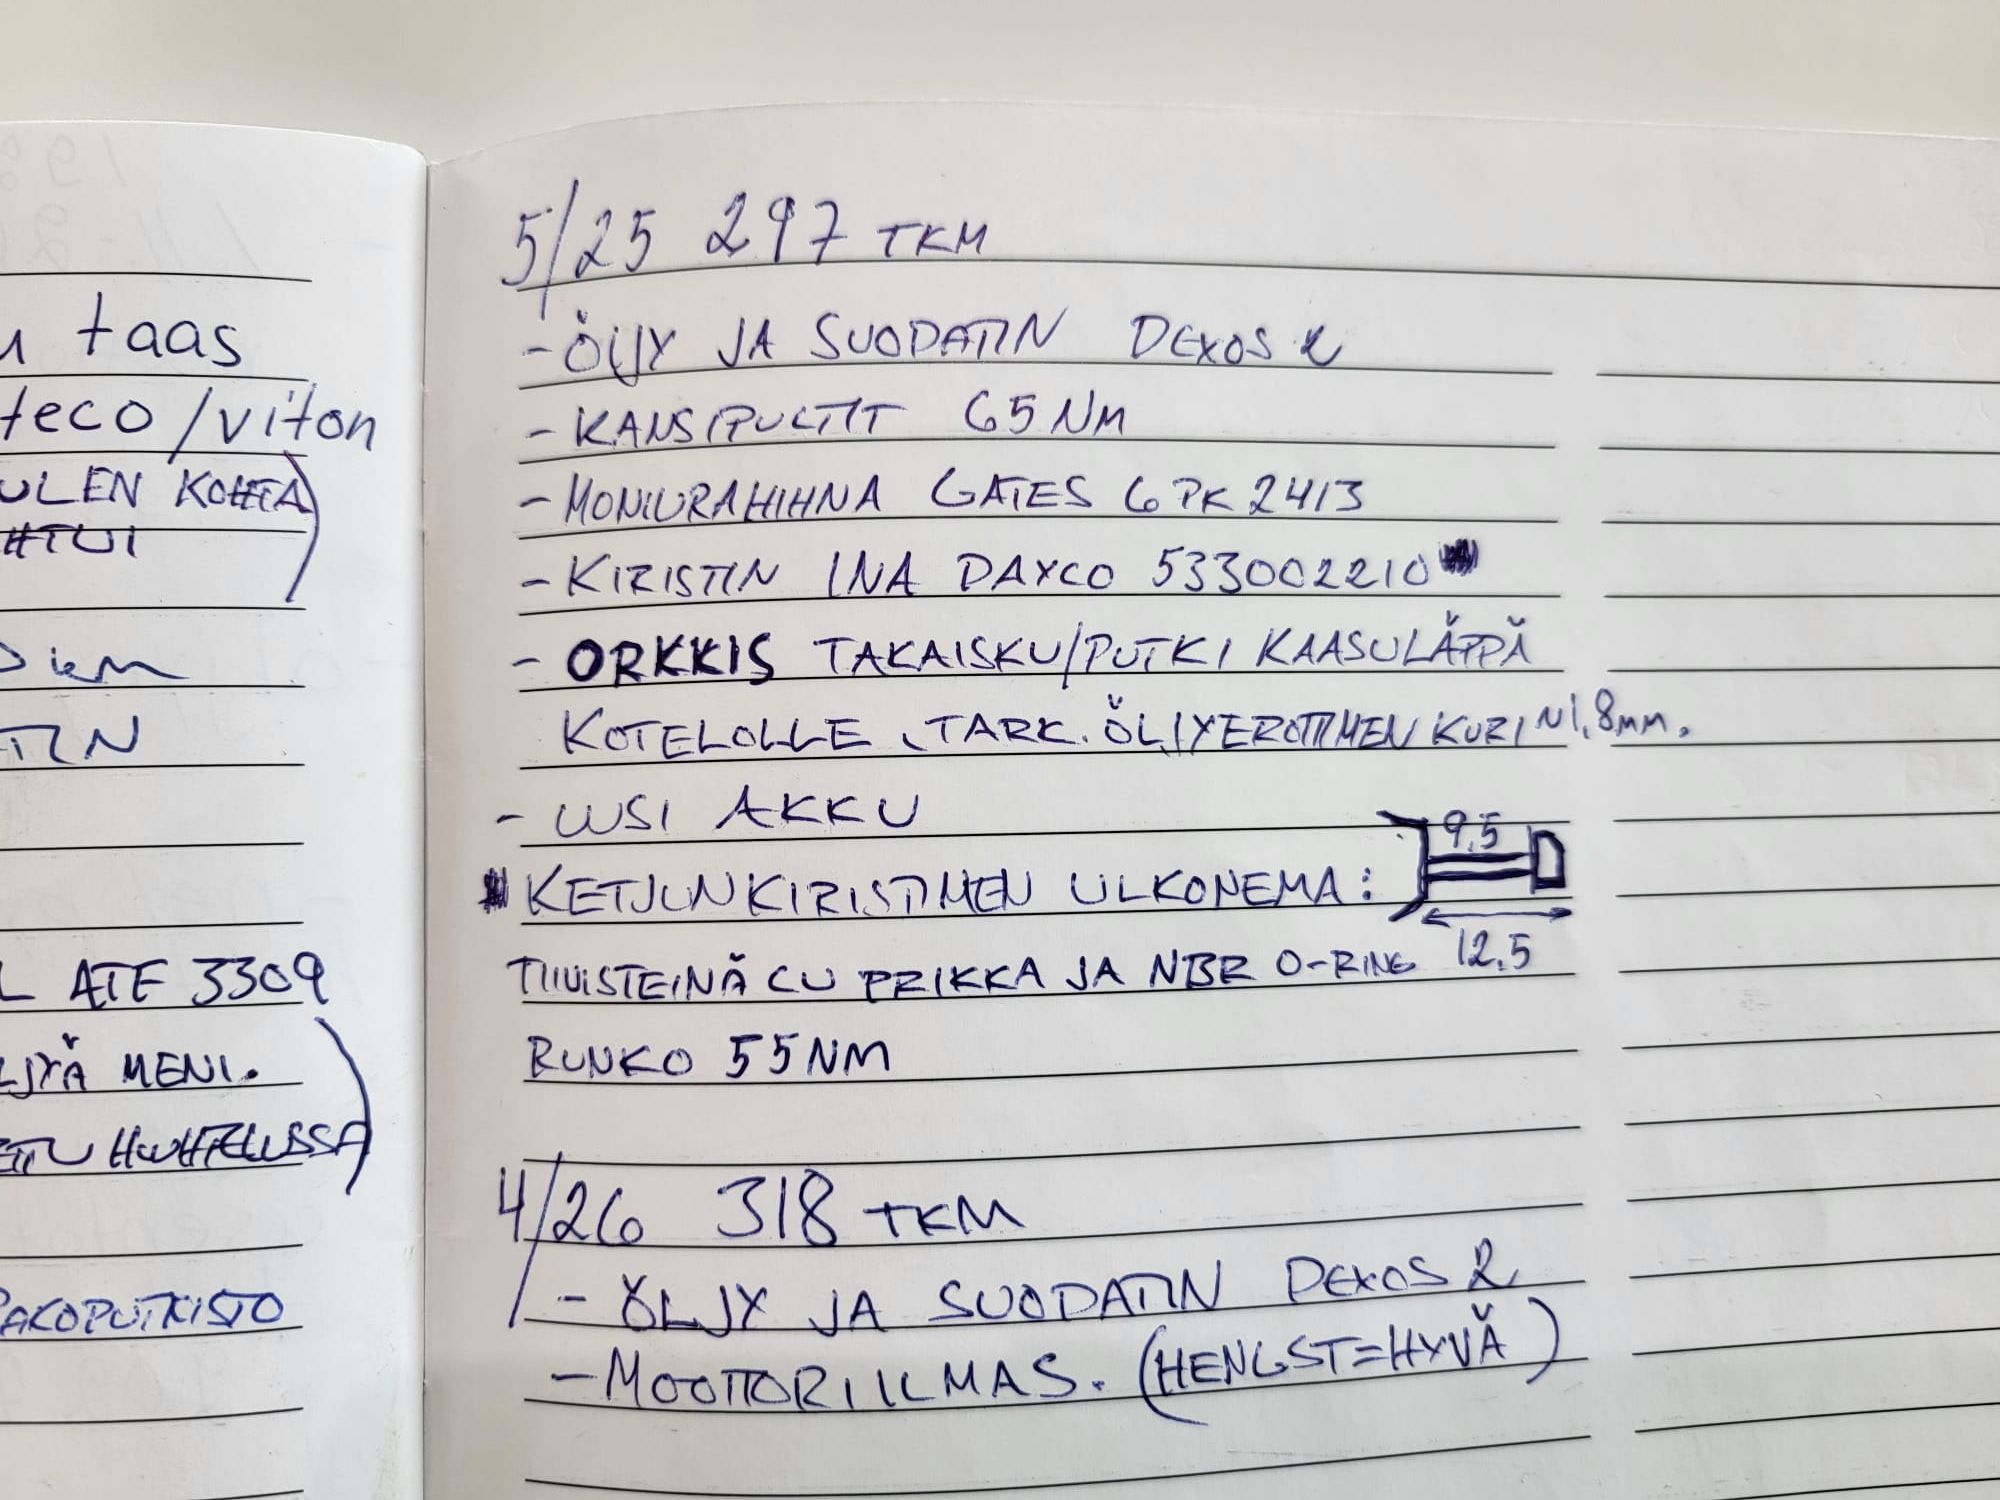 taas
teco/viton
ULEN KOHTA
HTUI
TIN
L ATE 3309
LJYÄ MENI.
HUOHTELUSSA
PAKOPUTKISTO
5/25 297 TKM
- ÖLJY JA SUODATIN DEXOS 2
- KANSIPULTIT 65 NM
- MONIURAHIHNA GATES 6PK2413
- KIRISTIN INA DAYCO 533002210
- ORKKIS TAKAISKU/PUTKI KAASULÄPPÄ
KOTELOLLE, TARK. ÖLJYEROTTIMEN KURI N1,8mm.
- UUSI AKKU
KETJUNKIRISTIMEN ULKONEMA: 9,5
TIIVISTEINÄ CU PRIKKA JA NBR O-RING 12.5
RUNKO 55NM
4/26 318 TKM
- ÖLJY JA SUODATIN DEXOS 2
- MOOTTORI ILMAS. (HENGST=HYVÄ)